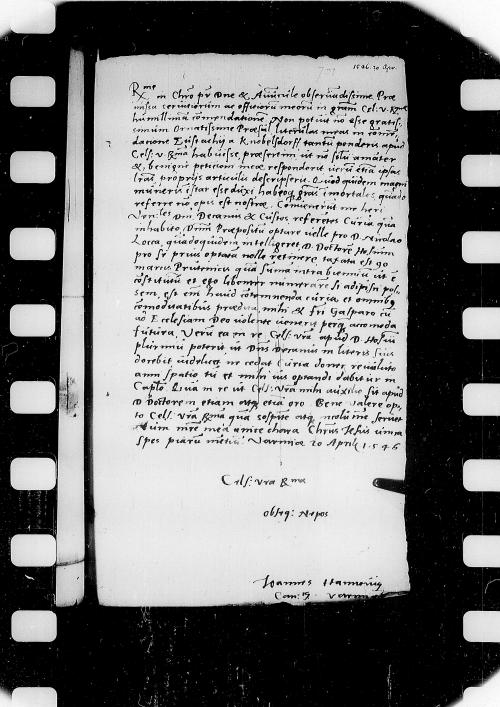 1546. 20 Apr.
R.me
in Chro pr Dne & Avuncule observandissime. Prae
missa servitiorum ac officiorum meorum in gram Cels. v. Rma
humillima commendatione. Non potuit no esse gratis
simum Ornatissime Praesul literulas meas in comen
datione Eustachij a Knobelsdorff tantum ponderis apud
Cels: v Rma habuisse, praesertim ut no solum amanter
& benigne petitioni meae responderit verum etiam ipsas
lras proprijs articulis descripserit. Quod quidem magni
muneris instar esse duxi habeoq gras immortales, quando
referre no opis est nostrae. Convenerunt me heri
Dnm Decanus & Custos referentes Curia qua
inhabito, Dnm Praepositum optare velle pro D. Nicolao
Loca, quandoquidem intelligeret D. Doctorem Hosium
pro se prius optata nolle retinere, taxata est 90
marcis Prutenicis qua suma intra biennium ut e
constitutum et ego libenter numerare si adipisci pos
sem, est enim haud contemnenda curia et omnibus
comoditatibus praedita, mihi & fri Gasparo cum
ad Ecclesiam Deo volente venerit perq acomoda
futura. Verum ea in re Cels: vra apud D. Hosium
plurimum poterit ut Dns Decanus in literis suis
docebit videlicet ne cedat curia donec revoluto
anni spatio tum et mihi ius optandi dabitur in
Caplo. Qua in re ut Cels: vra mihi auxilio sit apud
D Doctorem etiam atq etiam oro. Bene valere op
to Cels: vra Rma qua sospite atq incolume servet
Christus Jhesus unica
spes piarum mentium Varmiae 20 Aprilis 1546
Cels: vra Rma
obseq: Nepos
Joannes Hannovius
Can: Varmien